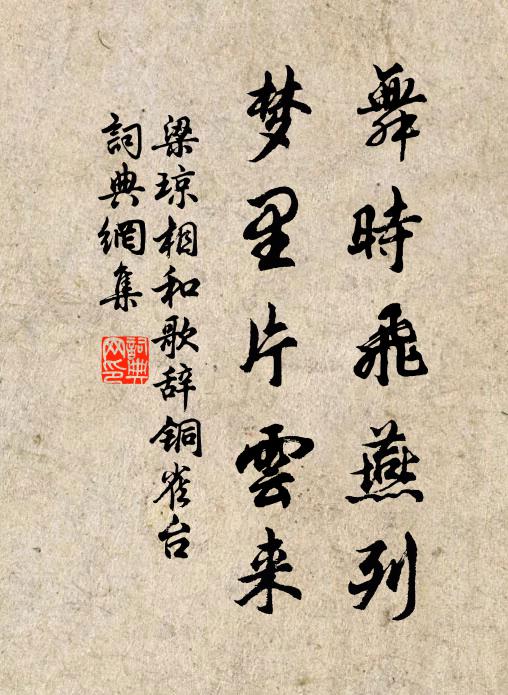 舞時飛燕列
梦里片雲来
梁琼相和歌辞铜雀台
詞典網集
詞典網印